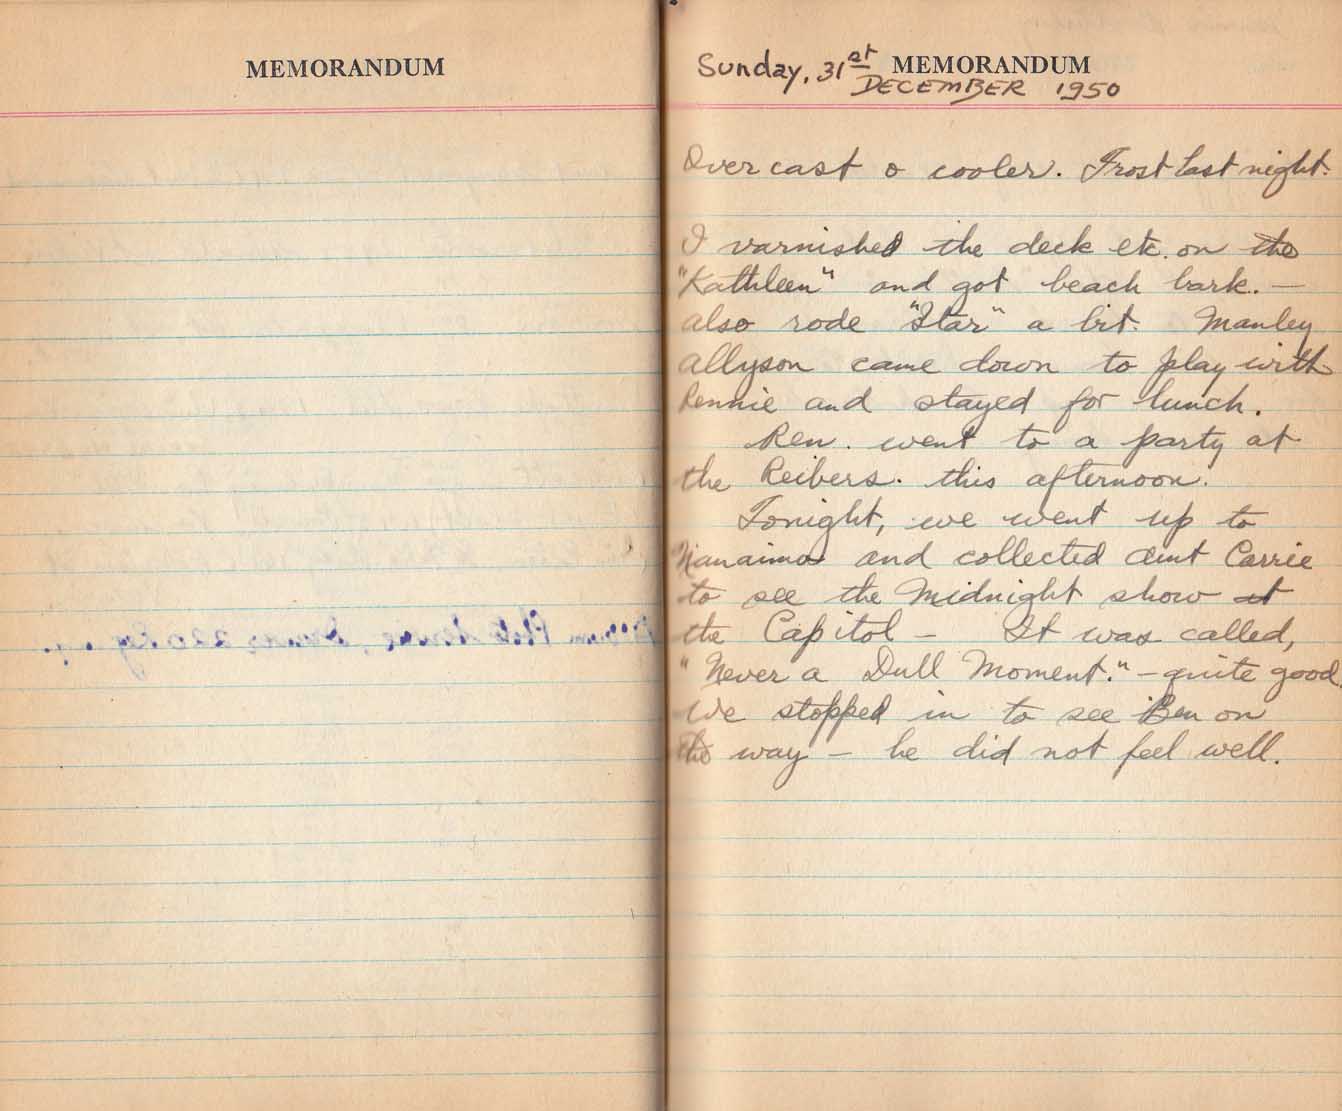 MEMORANDUM
Sunday, 31st MEMORANDUM
DECEMBER 1950
Overcast & cooler. Frost last night.
I varnished the deck etc. on the
"Kathleen" and got beach bark. —
also rode "Star" a bit. Manley
Allyson came down to play with
Rennie and stayed for lunch.
Ren. went to a party at
the Reibers. this afternoon.
Tonight, we went up to
Nanaimo and collected Aunt Carrie
to see the Midnight show at
the Capitol — It was called,
"Never a Dull Moment." — quite good
We stopped in to see Ben on
the way — he did not feel well.